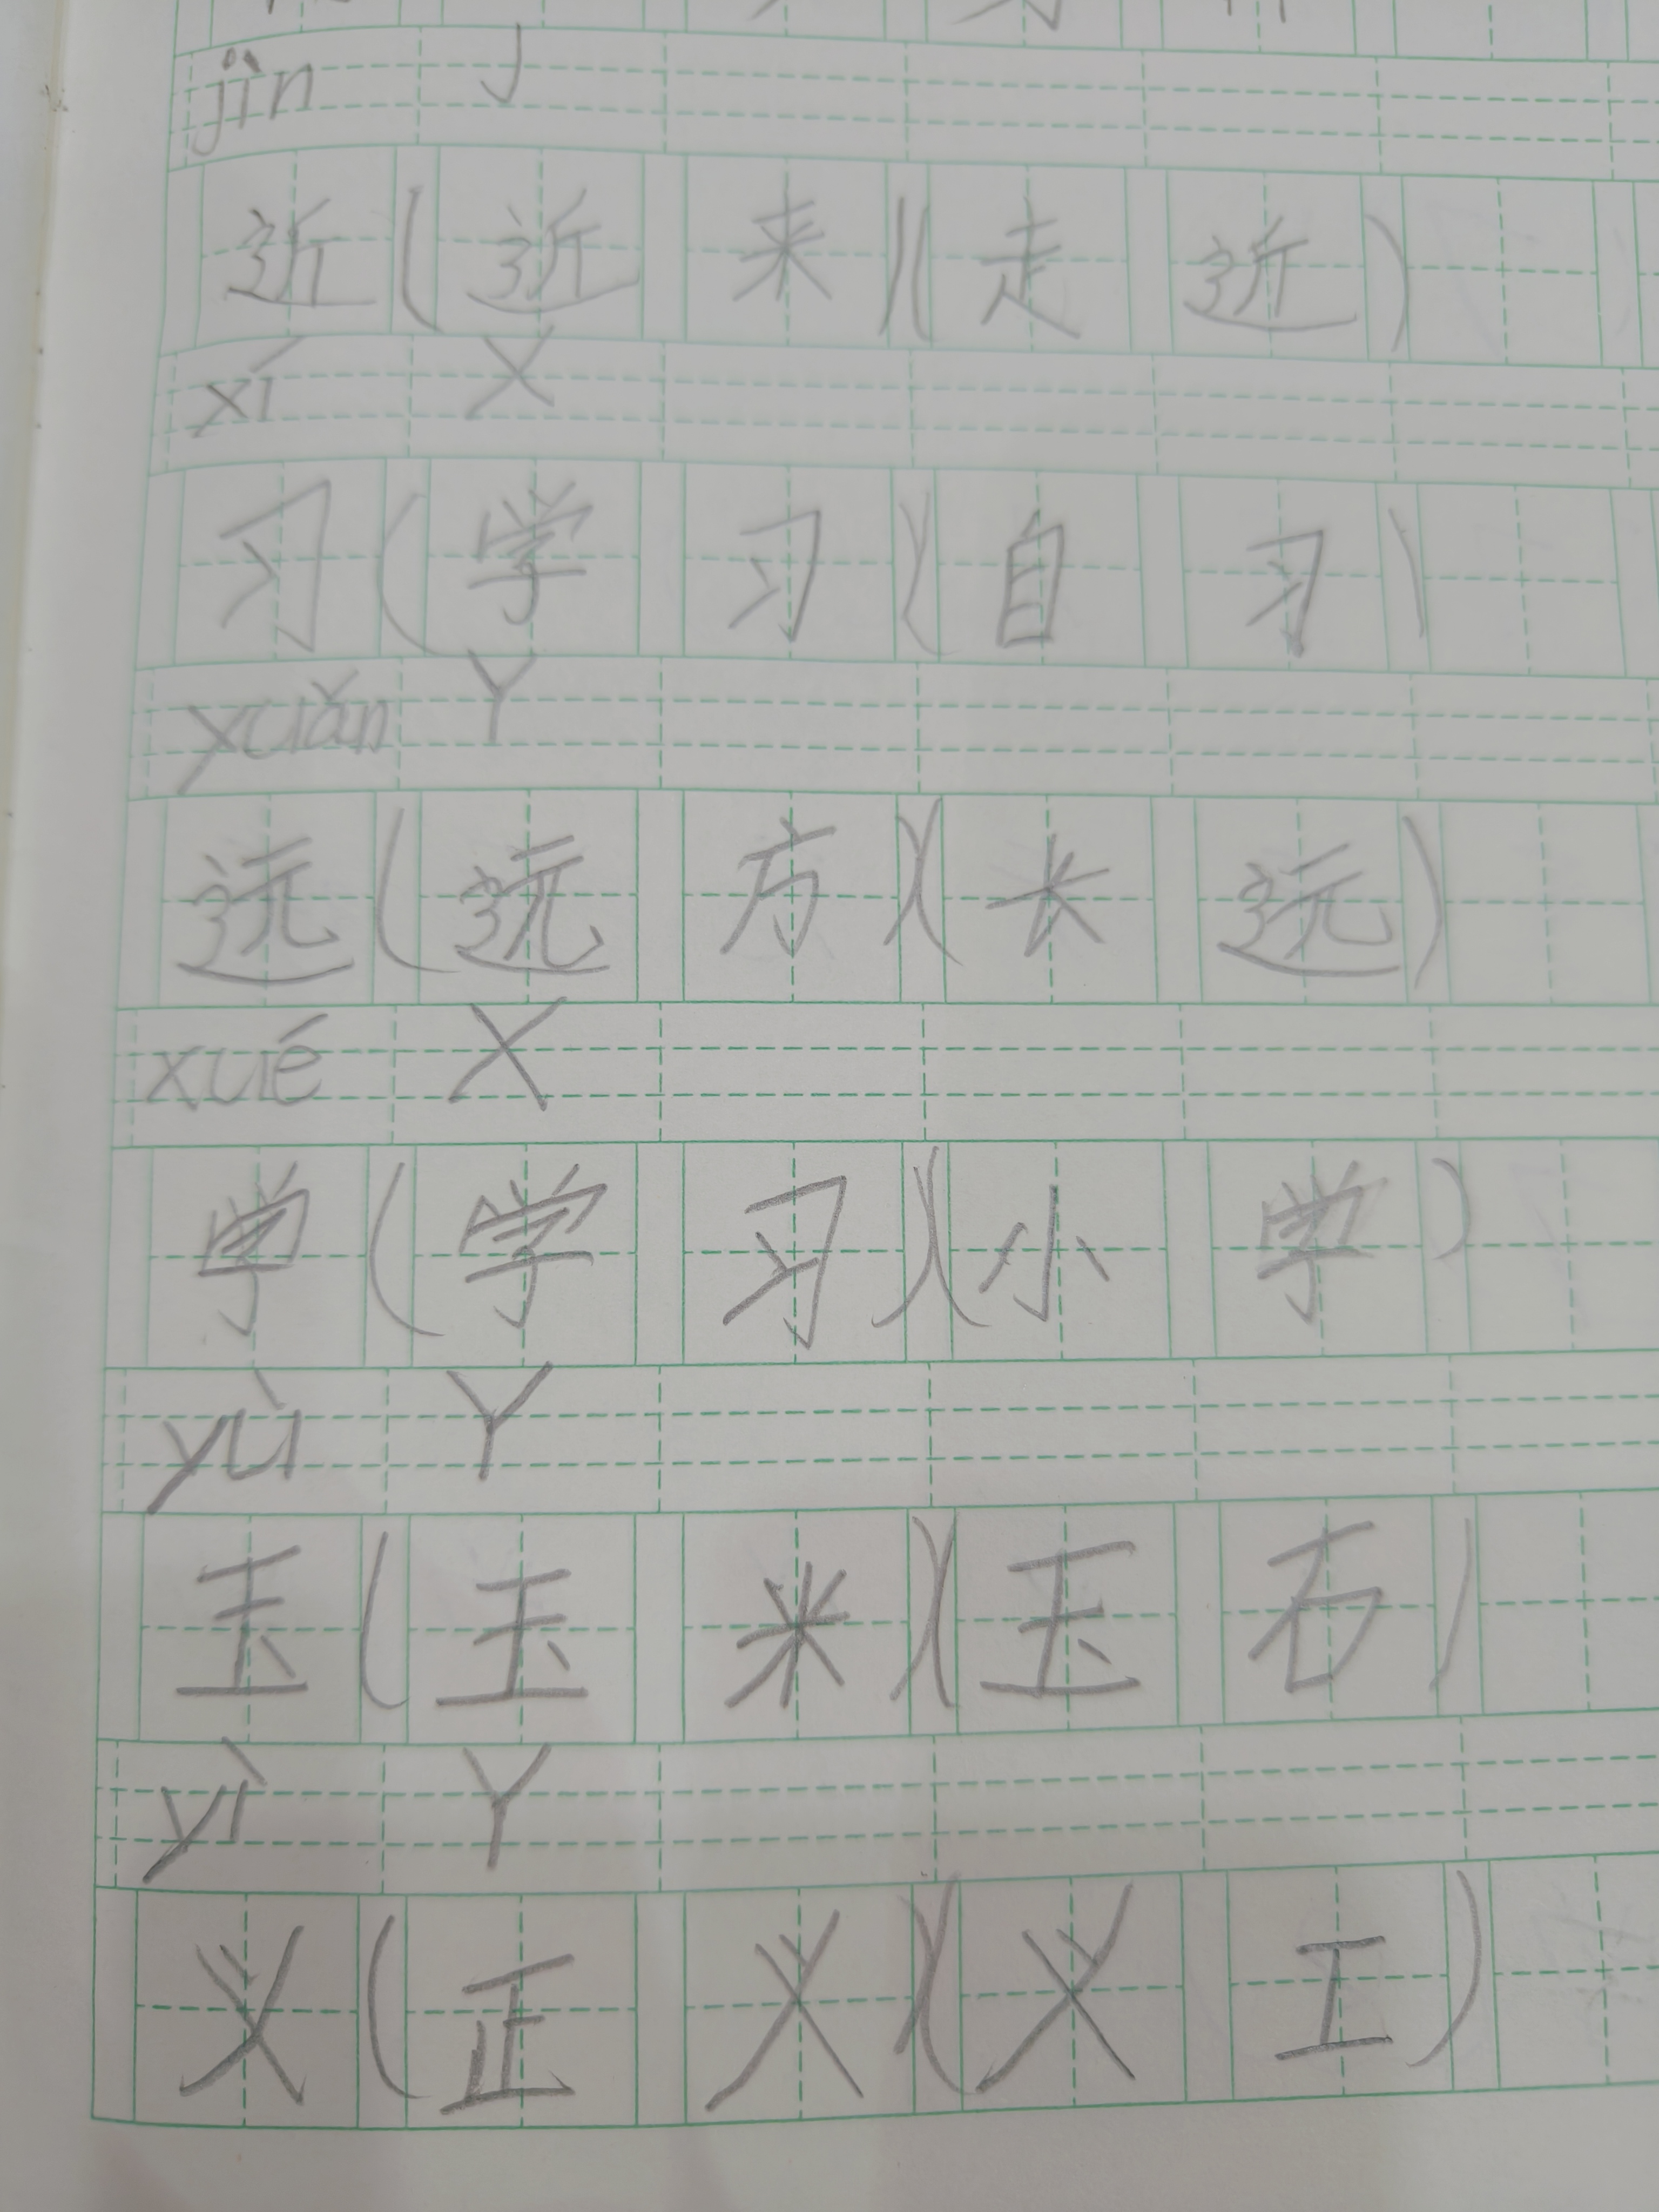 jìn J
近(近来)(走近)
xí X
习(学习)(自习)
yuǎn Y
远(远方)(长远)
xué X
学(学习)(小学)
yù Y
玉(玉米)(玉石)
yì Y
义(正义)(义工)